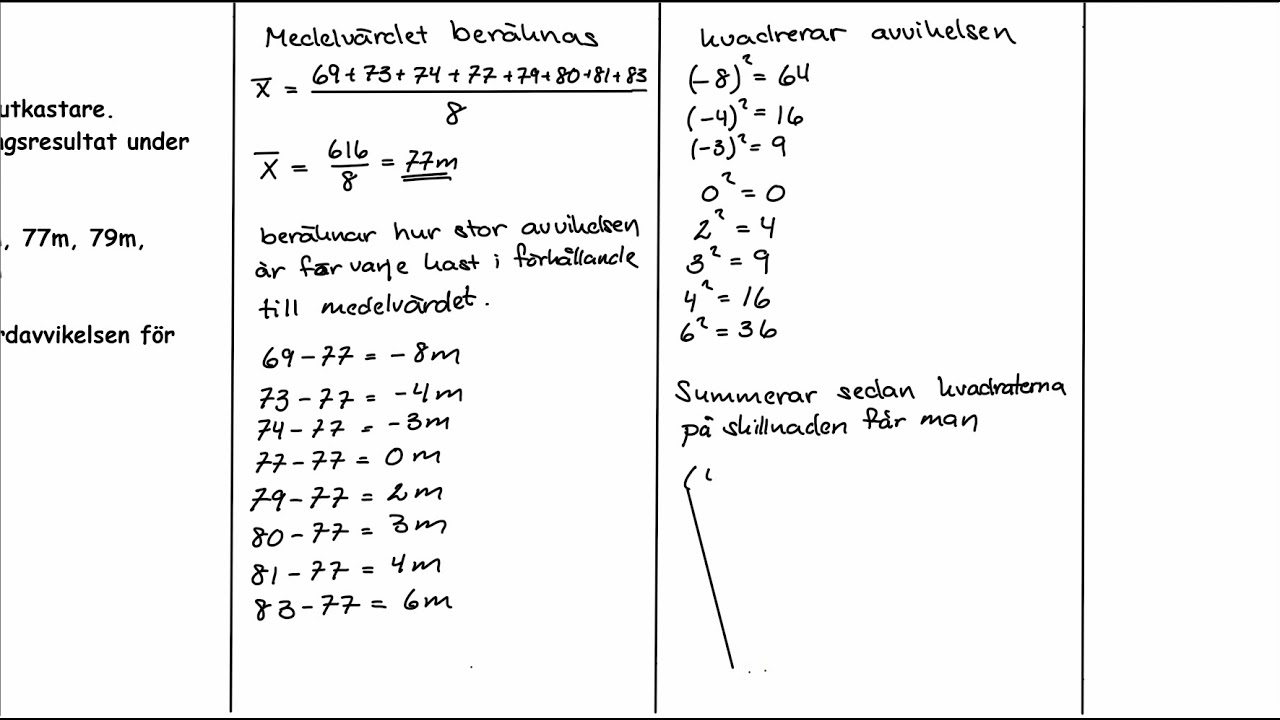 utkastare.
ngsresultat under
, 77m, 79m,
rdavvikelsen för
Medelvärdet beräknas
x̄ = (69+73+74+77+79+80+81+83)/8
x̄ = 616/8 = 77m
beräknar hur stor avvikelsen
är för varje kast i förhållande
till medelvärdet.
69-77 = -8m
73-77 = -4m
74-77 = -3m
77-77 = 0m
79-77 = 2m
80-77 = 3m
81-77 = 4m
83-77 = 6m
kvadrerar avvikelsen
(-8)² = 64
(-4)² = 16
(-3)² = 9
0² = 0
2² = 4
3² = 9
4² = 16
6² = 36
Summerar sedan kvadraterna
på skillnaden får man
(